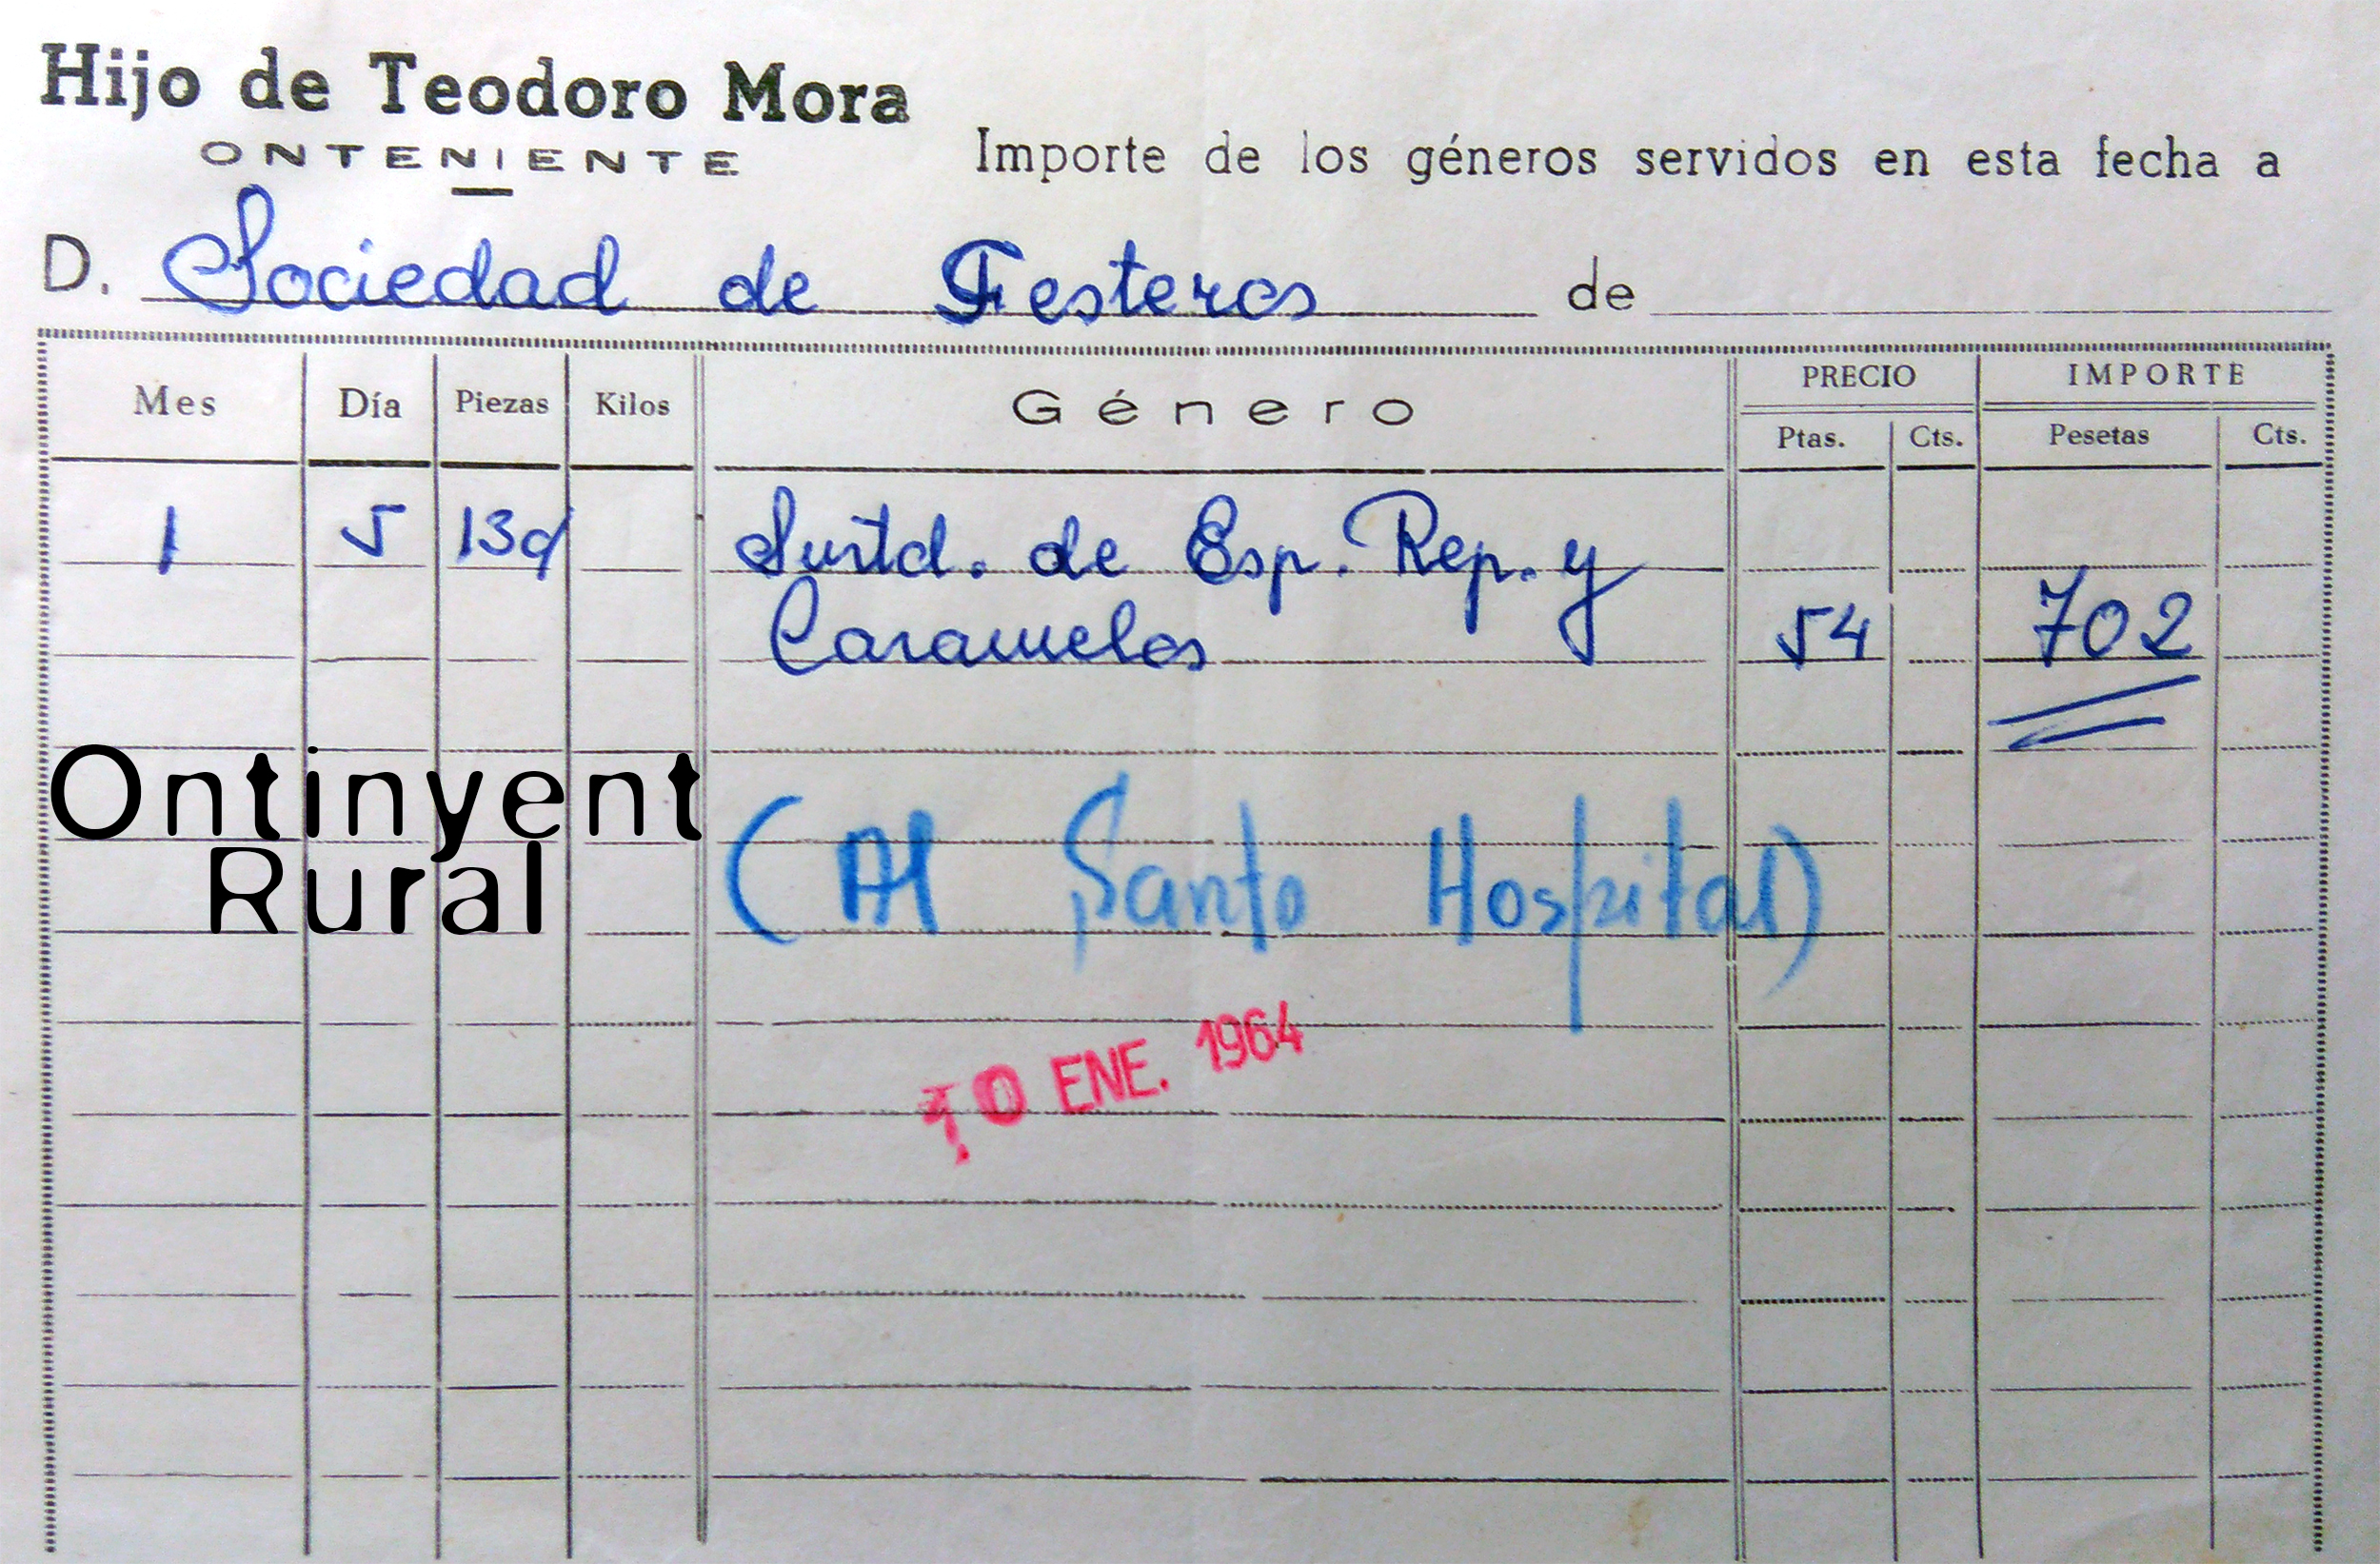 Hijo de Teodoro Mora
ONTENIENTE
Importe de los géneros servidos en esta fecha a
D. Sociedad de Festeros de
Mes Día Piezas Kilos Género PRECIO IMPORTE
Ptas. Cts. Pesetas Cts.
1 5 13 Surtd. de Esp. Rep. y
Caramelos 54 702
Ontinyent
Rural
(Al Santo Hospital)
10 ENE. 1964